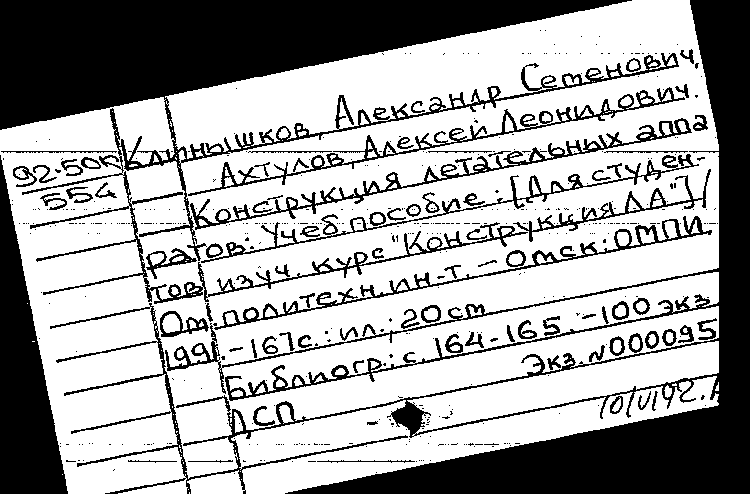 Клинышков, Александр Семенович,
92-50п Ахтулов, Алексей Леонидович.
554 Конструкция летательных аппа
ратов: Учеб. пособие: [Для студен-
тов, изуч. курс "Конструкция ЛА"] /
Ом. политехн. ин-т. – Омск: ОМПИ,
1991. – 167с.: ил.; 20см
Библиогр.: с. 164-165. – 100 экз
ДСП. Экз. N000095
10/VI92.